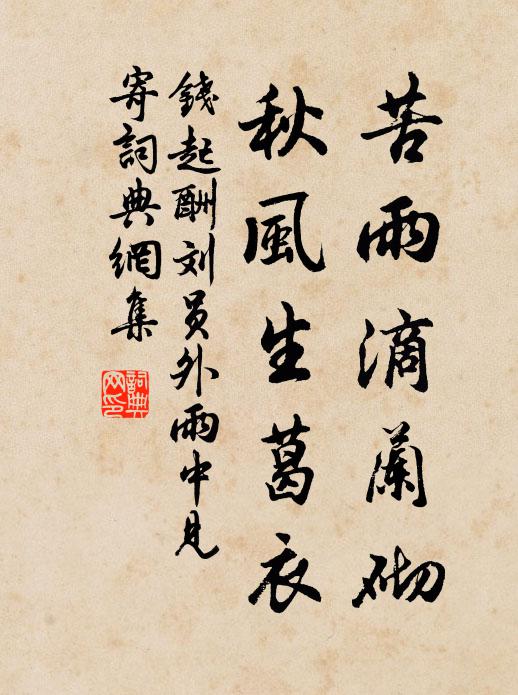 苦雨滴蘭砌
秋風生葛衣
錢起酬刘員外雨中見
寄詞典網集
詞典
网印